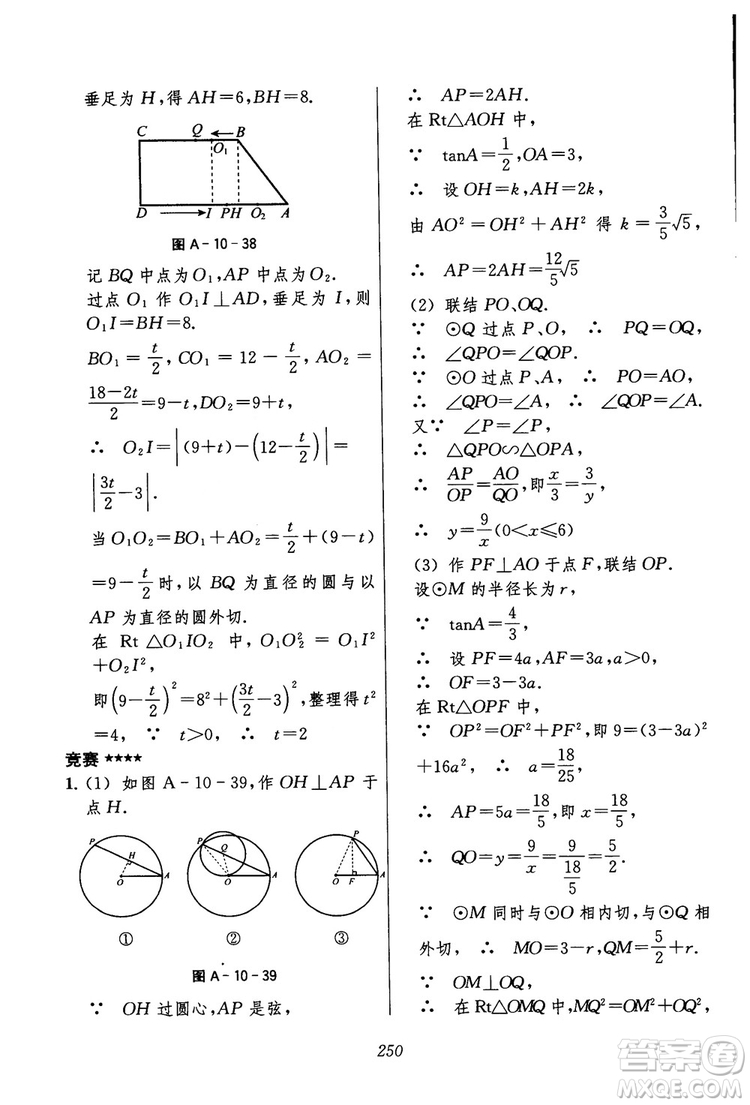 垂足为 H,得 AH=6,BH=8.
C Q B
O₁
D I PH O₂ A
图 A-10-38
记 BQ 中点为 O₁,AP 中点为 O₂.
过点 O₁ 作 O₁I⊥AD,垂足为 I,则
O₁I=BH=8.
BO₁=t/2,CO₁=12-t/2,AO₂=
(18-2t)/2=9-t,DO₂=9+t,
∴ O₂I=|(9+t)-(12-t/2)|=
|3t/2-3|.
当 O₁O₂=BO₁+AO₂=t/2+(9-t)
=9-t/2时,以 BQ 为直径的圆与以
AP 为直径的圆外切.
在 Rt△O₁IO₂ 中,O₁O₂²=O₁I²
+O₂I²,
即(9-t/2)²=8²+(3t/2-3)²,整理得 t²
=4, ∵ t>0, ∴ t=2
竞赛 ★★★★
1. (1) 如图 A-10-39,作 OH⊥AP 于
点 H.
P H O A
P Q O A
P O F A
① ② ③
图 A-10-39
∵ OH 过圆心,AP 是弦,
∴ AP=2AH.
在 Rt△AOH 中,
∵ tanA=1/2,OA=3,
∴ 设 OH=k,AH=2k,
由 AO²=OH²+AH² 得 k=3/5√5
∴ AP=2AH=12/5√5
(2) 联结 PO、OQ.
∵ ⊙Q 过点 P、O, ∴ PQ=OQ,
∴ ∠QPO=∠QOP.
∵ ⊙O 过点 P、A, ∴ PO=AO,
∴ ∠QPO=∠A, ∴ ∠QOP=∠A.
又∵ ∠P=∠P,
∴ △QPO∽△OPA,
∴ AP/OP=AO/QO,即x/3=3/y,
∴ y=9/x(0<x≤6)
(3) 作 PF⊥AO 于点 F,联结 OP.
设⊙M 的半径长为 r,
∵ tanA=4/3,
∴ 设 PF=4a,AF=3a,a>0,
∴ OF=3-3a.
在 Rt△OPF 中,
∵ OP²=OF²+PF²,即 9=(3-3a)²
+16a² ∴ a=18/25,
∴ AP=5a=18/5,即 x=18/5,
∴ QO=y=9/x=9/(18/5)=5/2,
∵ ⊙M 同时与⊙O 相内切,与⊙Q 相
外切, ∴ MO=3-r,QM=5/2+r.
∵ OM⊥OQ,
∴ 在 Rt△OMQ 中,MQ²=OM²+OQ²
250
答案圈
MXQE.COM